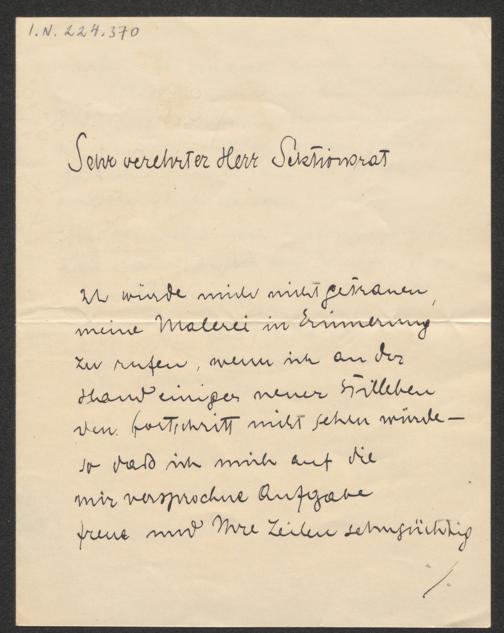 I.N. 224.370
Sehr verehrter Herr Sektionsrat
Ich würde mich nicht getrauen,
meine Malerei in Erinnerung
zu rufen, wenn ich an der
Hand einiger neuer Stilleben
den Fortschritt nicht sehen würde —
so daß ich mich auf die
mir versprochne Aufgabe
freue und Ihre Zeilen sehnsüchtig
./.